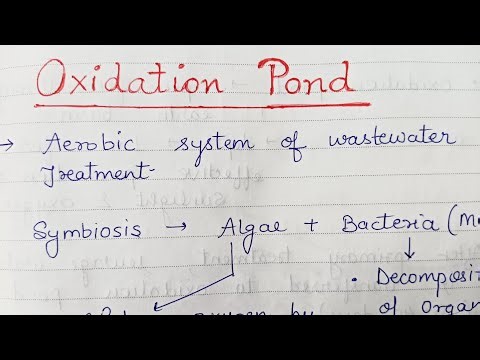 Oxidation Pond
→ Aerobic system of wastewater
Treatment-
Symbiosis → Algae + Bacteria (
• Decomposit
oxygen by of Organ